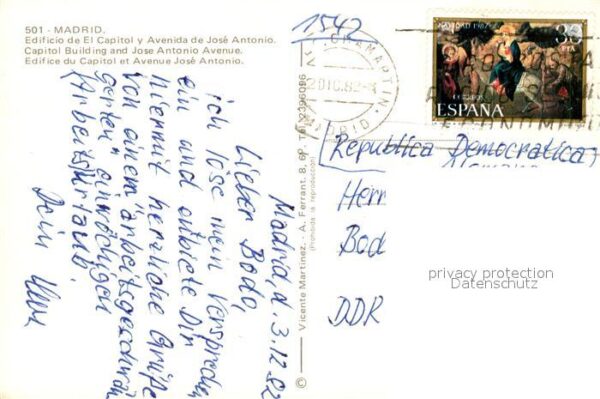 501 - MADRID.
Edificio de El Capitol y Avenida de José Antonio.
Capitol Building and Jose Antonio Avenue.
Edifice du Capitol et Avenue José Antonio.
1542
CHAMARTIN
2 DIC. 82
MADRID
NAVIDAD 1982
PTA
CORREOS
ESPAÑA
Madrid, d. 3.12.82
Lieber Bodo,
ich löse mein Versprechen
ein und entbiete Dir
hiermit herzliche Grüße
von einem "arbeitsgeeinigten
gerten" einwöchigen
Arbeitsurlaub.
Dein
Vicente Martínez. - A. Ferrant, 8, 6º. Tel. 2396096
(Prohibida la reproducción)
©
Republica Democratica
Alemana
Herr
Bod
DDR
privacy protection
Datenschutz